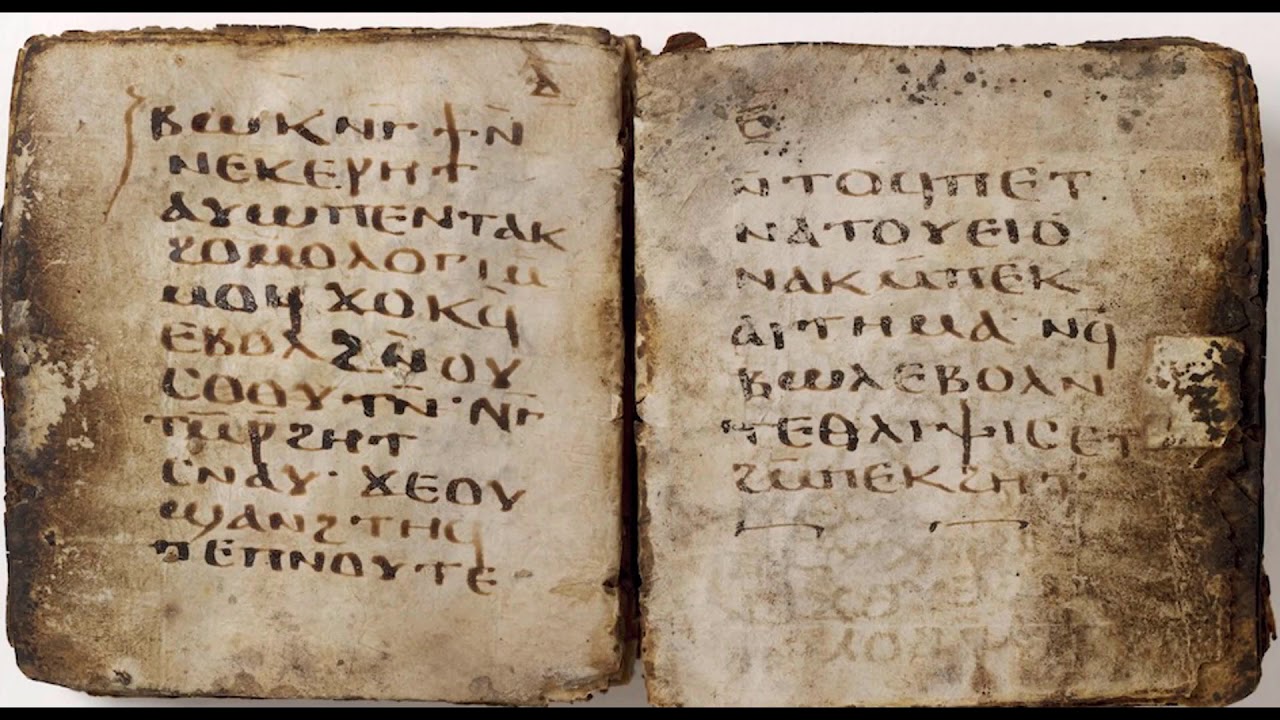 ⲇ
ⲃⲱⲕⲛⲅ̄ϯⲛ̄
ⲛⲉⲕⲉⲣⲏⲧ
ⲁⲩⲱⲡⲉⲛⲧⲁⲕ
ϩⲟⲙⲟⲗⲟⲅⲓⲙ̄
ⲙⲟϥ ϫⲟⲕϥ̄
ⲉⲃⲟⲗϩⲛ̄ⲟⲩ
ⲥⲟⲟⲩⲧⲛ̄· ⲛⲅ̄
ⲧⲙ̄ⲣ̄ϩⲏⲧ
ⲥⲛⲁⲩ· ϫⲉⲟⲩ
ϣⲁⲛϩⲧⲏϥ
ⲡⲉⲡⲛⲟⲩⲧⲉ·
ⲉ
ⲛ̄ⲧⲟϥⲡⲉⲧ
ⲛⲁⲧⲟⲩⲉⲓⲟ
ⲛⲁⲕⲙ̄ⲡⲉⲕ
ⲁⲓⲧⲏⲙⲁ· ⲛϥ̄
ⲃⲱⲗⲉⲃⲟⲗⲛ
ⲧⲉⲑⲗⲓⲯⲓⲥⲉⲧ
ϩⲙ̄ⲡⲉⲕϩⲏⲧ·